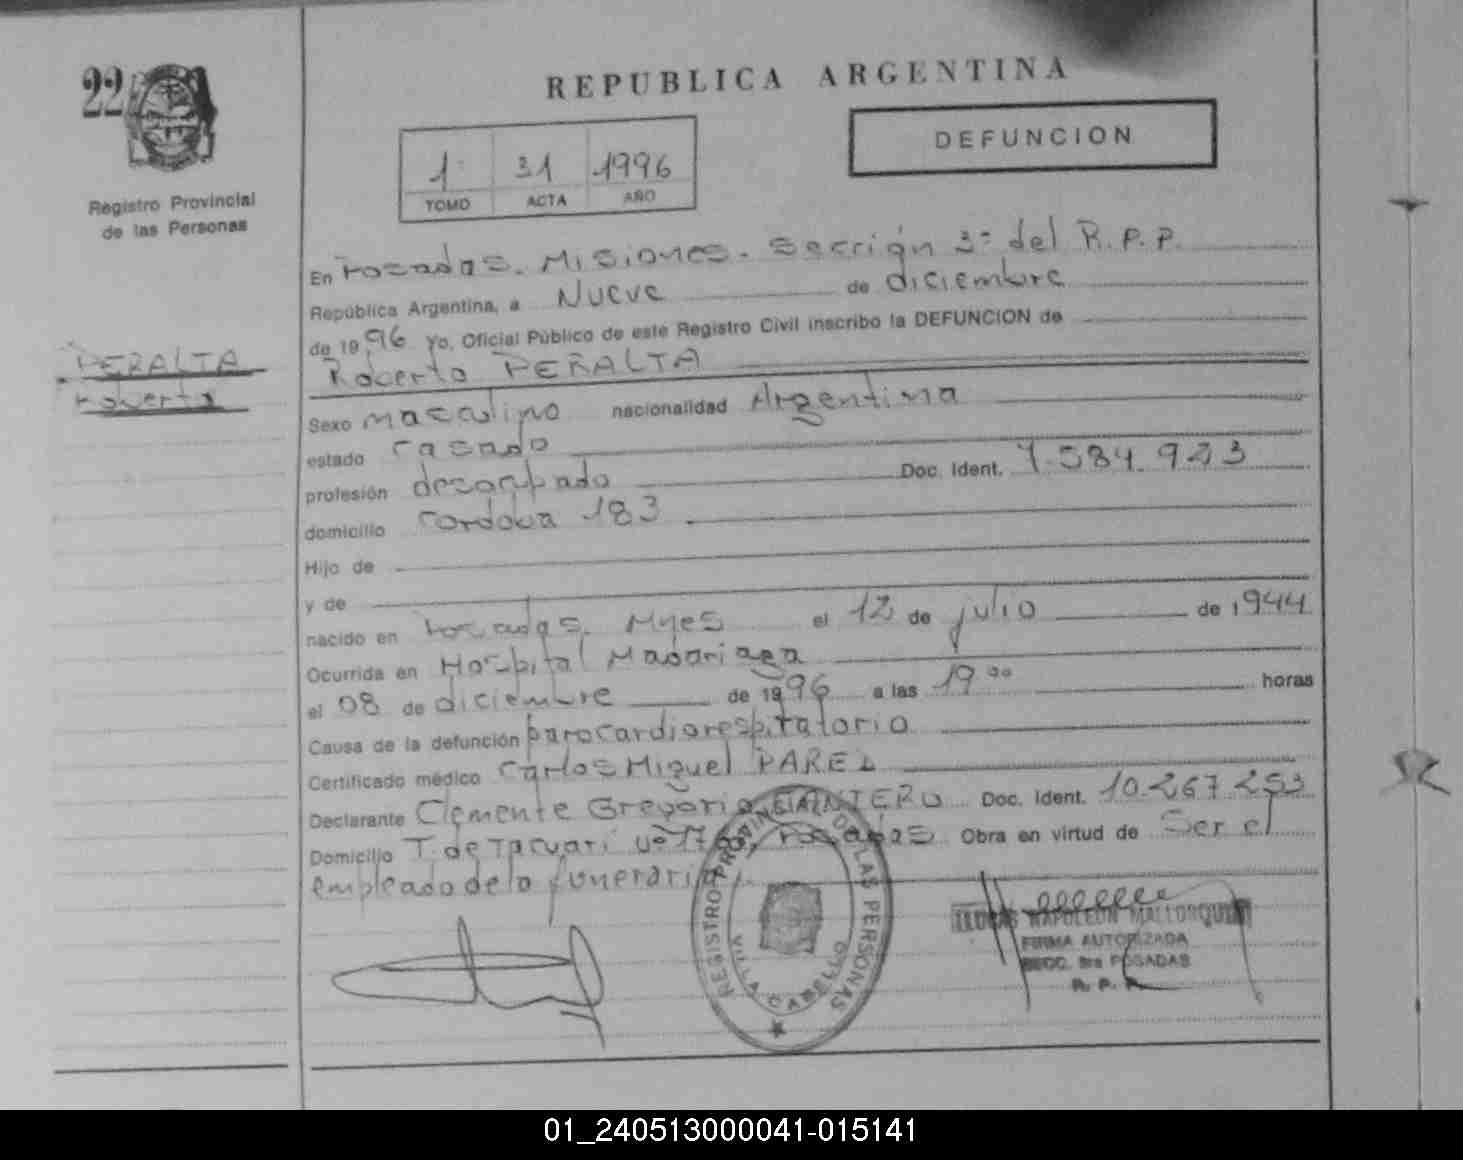 22
REPUBLICA ARGENTINA
DEFUNCION
1 31 1996
TOMO ACTA AÑO
Registro Provincial
de las Personas
PERALTA
Roberto
En Posadas. Misiones. Sección 3ª del R.P.P.
República Argentina, a Nueve de diciembre
de 1996 yo, Oficial Público de este Registro Civil inscribo la DEFUNCION de
Roberto PERALTA
Sexo masculino nacionalidad Argentina
estado casado
profesión desocupado Doc. Ident. 7.584.923
domicilio Cordoba 183
Hijo de
y de
nacido en Posadas. Mnes el 12 de julio de 1944
Ocurrida en Hospital Madariaga
el 08 de diciembre de 1996 a las 19 00 horas
Causa de la defunción parocardiorespiratorio
Certificado médico Carlos Miguel
Declarante Clemente Gregorio Doc. Ident. 10.267.253
Domicilio T. de Tacuarí Posadas Obra en virtud de Ser el
empleado de la funeraria
REGISTRO PROVINCIAL DE LAS PERSONAS
VILLA CABELLO
LUCAS NAPOLEON MALLORQUIN
FIRMA AUTORIZADA
SECC. 3ra POSADAS
R. P. P.
01_240513000041-015141